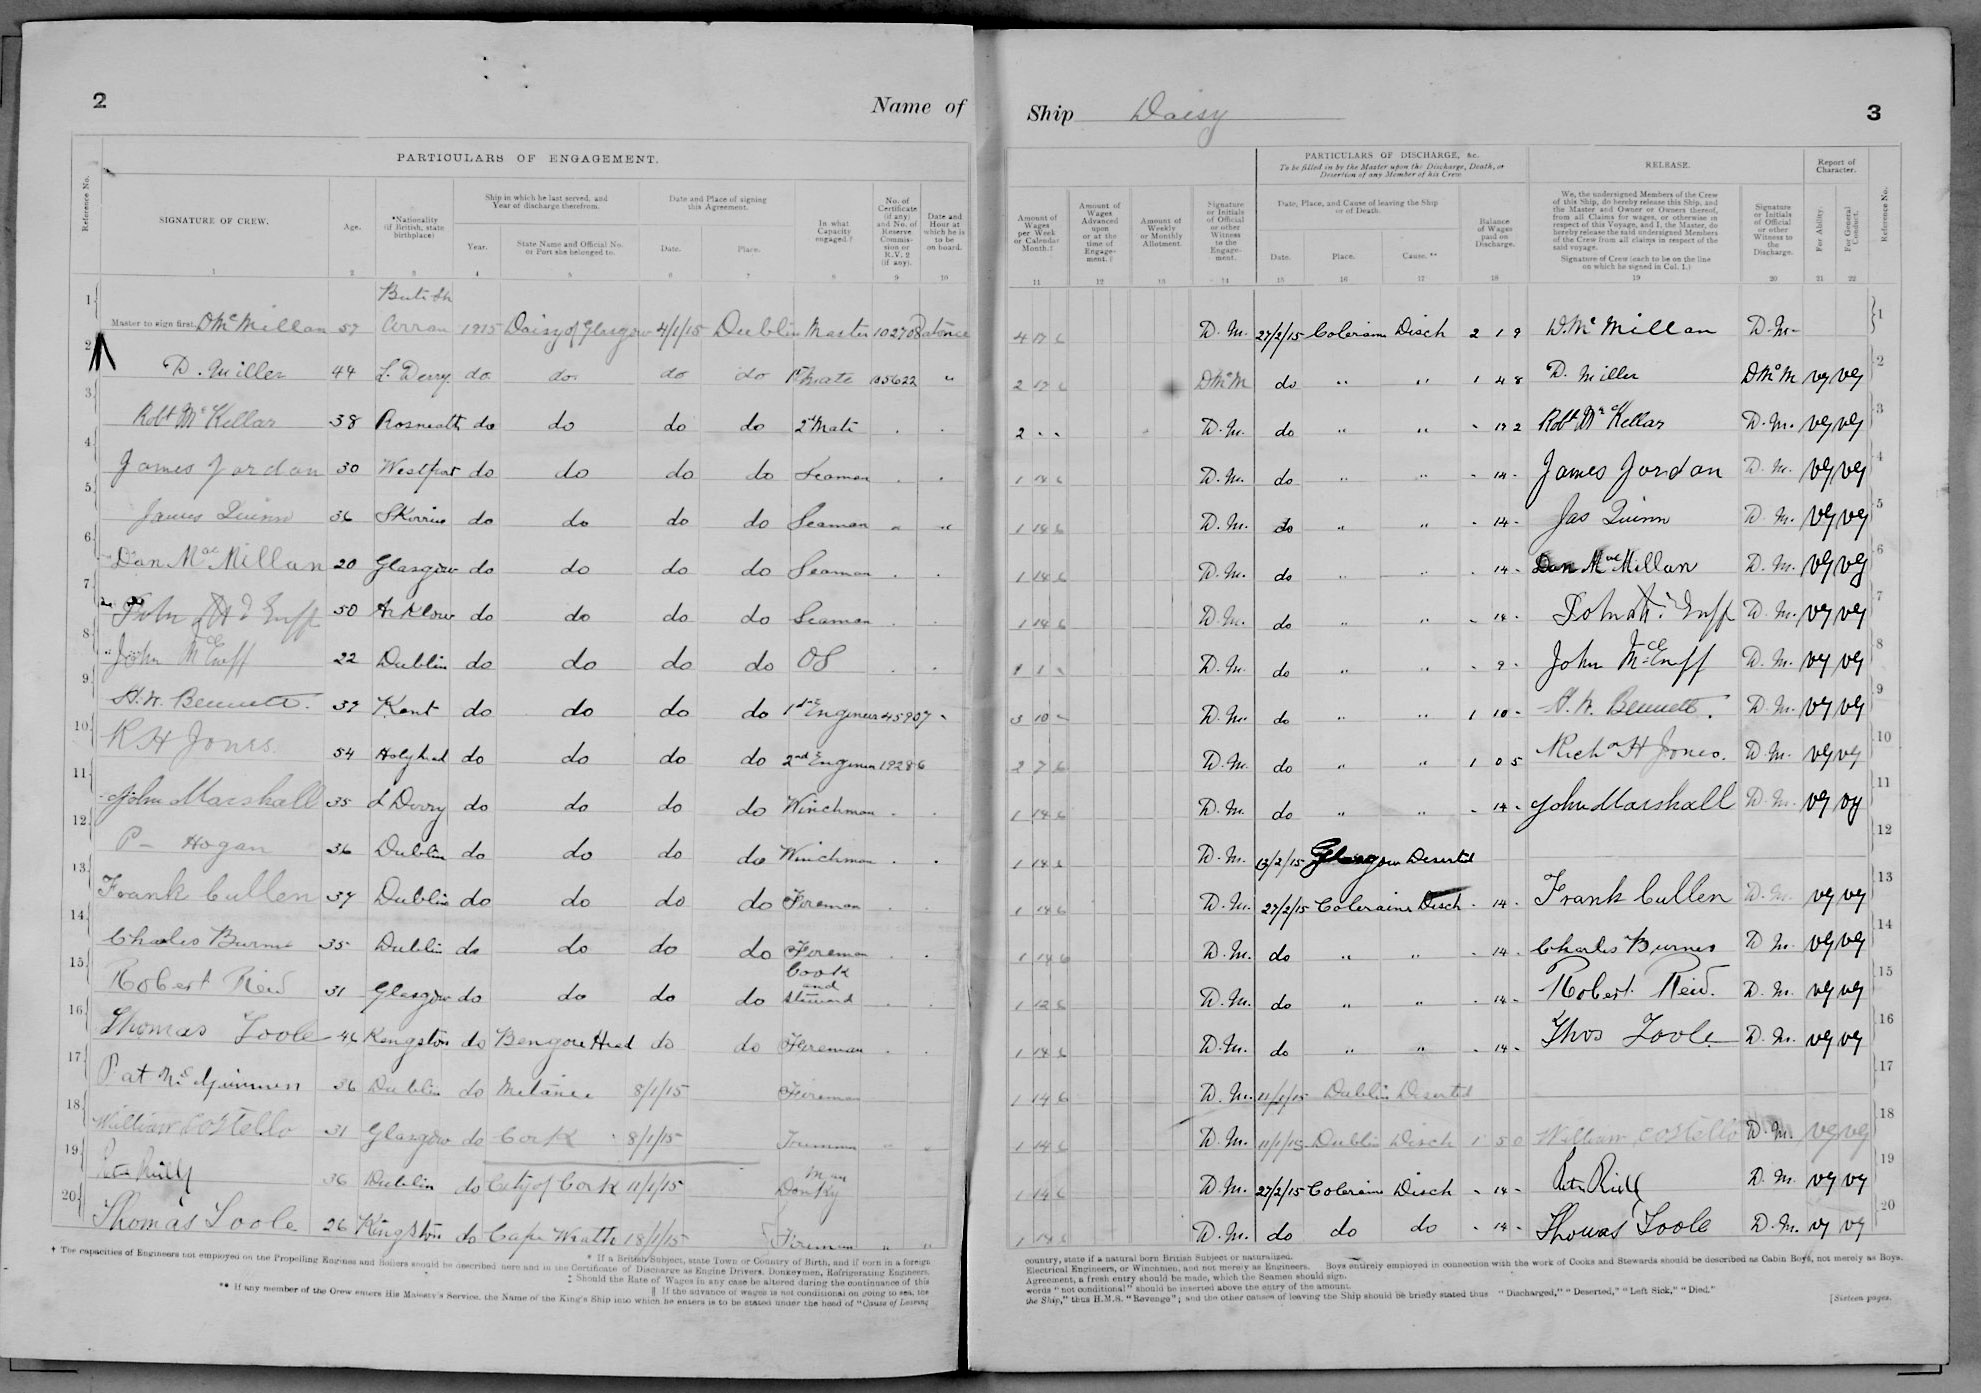 2
Name of
Ship Daisy
3
PARTICULARS OF ENGAGEMENT.
PARTICULARS OF DISCHARGE, &c.
To be filled in by the Master upon the Discharge, Death, or Desertion of any Member of his Crew
RELEASE.
Report of Character.
Reference No.
SIGNATURE OF CREW.
Age.
*Nationality (if British, state birthplace)
Ship in which he last served, and Year of discharge therefrom.
Year.
State Name and Official No. or Port she belonged to.
Date and Place of signing this Agreement.
Date.
Place.
In what Capacity engaged.†
No. of Certificate (if any) and No. of Reserve Commission or R.V. 2 (if any).
Date and Hour at which he is to be on board.
Amount of Wages per Week or Calendar Month.‡
Amount of Wages Advanced upon or at the time of Engagement.‖
Amount of Weekly or Monthly Allotment.
Signature or Initials of Official or other Witness to the Engagement.
Date, Place, and Cause of leaving the Ship or of Death.
Date.
Place.
Cause.**
Balance of Wages paid on Discharge.
We, the undersigned Members of the Crew of this Ship, do hereby release this Ship, and the Master and Owner or Owners thereof, from all Claims for wages, or otherwise in respect of this Voyage, and I, the Master, do hereby release the said undersigned Members of the Crew from all claims in respect of the said voyage.
Signature of Crew (each to be on the line on which he signed in Col. 1.)
Signature or Initials of Official or other Witness to the Discharge.
For Ability.
For General Conduct.
Reference No.
1 2 3 4 5 6 7 8 9 10 11 12 13 14 15 16 17 18 19 20 21 22
1 Master to sign first. D McMillan 57 British Arran 1915 Daisy of Glasgow 4/1/15 Dublin Master 102708 at once 4 17 6 D.M. 27/2/15 Coleraine Disch 2 1 9 D. McMillan D.M. 1
2 D. Miller 44 L. Derry do do do do 1st Mate 105622 " 2 17 6 DMcM do " " 1 4 8 D. Miller DMcM VG VG 2
3 Robt McKellar 38 Rosneath do do do do 2d Mate 2 - - D.M. do " " - 17 2 Robt McKellar D.M. VG VG 3
4 James Jordan 30 Westport do do do do Seaman 1 14 6 D.M. do " " - 14 - James Jordan D.M. VG VG 4
5 James Quinn 36 do do do do Seaman " " 1 14 6 D.M. do " " - 14 - Jas Quinn D.M. VG VG 5
6 Dan MacMillan 20 Glasgow do do do do Seaman 1 14 6 D.M. do " " - 14 - Dan MacMillan D.M. VG VG 6
7 John 50 Arklow do do do do Seaman 1 14 6 D.M. do " " - 14 - John D.M. VG VG 7
8 John McEnff 22 Dublin do do do do OS 1 1 - D.M. do " " - 9 - John McEnff D.M. VG VG 8
9 H.W. Bennett. 37 Kent do do do do 1st Engineer 45907 3 10 - D.M. do " " 1 10 - H.W. Bennett. D.M. VG VG 9
10 R H Jones. 54 Holyhead do do do do 2nd Engineer 19286 2 7 6 D.M. do " " 1 0 5 Richd H Jones. D.M. VG VG 10
11 John Marshall 35 L Derry do do do do Winchman 1 14 6 D.M. do " " - 14 - John Marshall D.M. VG VG 11
12 P- Hogan 36 Dublin do do do do Winchman 1 14 6 D.M. 13/2/15 Glasgow Deserted 12
13 Frank Cullen 37 Dublin do do do do Fireman 1 14 6 D.M. 27/2/15 Coleraine Disch - 14 - Frank Cullen D.M. VG VG 13
14 Charles Burns 35 Dublin do do do do Fireman 1 14 6 D.M. do " " - 14 - Charles Burnes D.M. VG VG 14
15 Robert Reid 31 Glasgow do do do do Cook and Steward 1 12 6 D.M. do " " - 14 - Robert Reid. D.M. VG VG 15
16 Thomas Toole 46 Kingston do Bengore Head do do Fireman 1 14 6 D.M. do " " - 14 - Thos Toole D.M. VG VG 16
17 Pat 36 Dublin do 8/1/15 Fireman 1 14 6 D.M. 11/1/15 Dublin Deserted 17
18 William Costello 31 Glasgow do Cork 8/1/15 " " 1 14 6 D.M. 11/1/15 Dublin Disch 1 5 0 William Costello D.M. VG VG 18
19 Peter Reilly 36 Dublin do City of Cork 11/1/15 Donkey Man 1 14 6 D.M. 27/2/15 Coleraine Disch - 14 - D.M. VG VG 19
20 Thomas Toole 26 Kingston do Cape Wrath 18/1/15 Fireman " " 1 14 6 D.M. do do do - 14 - Thomas Toole D.M. VG VG 20
† The capacities of Engineers not employed on the Propelling Engines and Boilers should be described here and in the Certificate of Discharge as Engine Drivers, Donkeymen, Refrigerating Engineers,
* If a British Subject, state Town or Country of Birth, and if born in a foreign
‡ Should the Rate of Wages in any case be altered during the continuance of this
‖ If the advance of wages is not conditional on going to sea, the
** If any member of the Crew enters His Majesty's Service, the Name of the King's Ship into which he enters is to be stated under the head of "Cause of Leaving
country, state if a natural born British Subject or naturalized.
Electrical Engineers, or Winchmen, and not merely as Engineers. Boys entirely employed in connection with the work of Cooks and Stewards should be described as Cabin Boys, not merely as Boys.
Agreement, a fresh entry should be made, which the Seamen should sign.
words "not conditional" should be inserted above the entry of the amount.
the Ship," thus H.M.S. "Revenge"; and the other causes of leaving the Ship should be briefly stated thus "Discharged," "Deserted," "Left Sick," "Died."
[Sixteen pages.